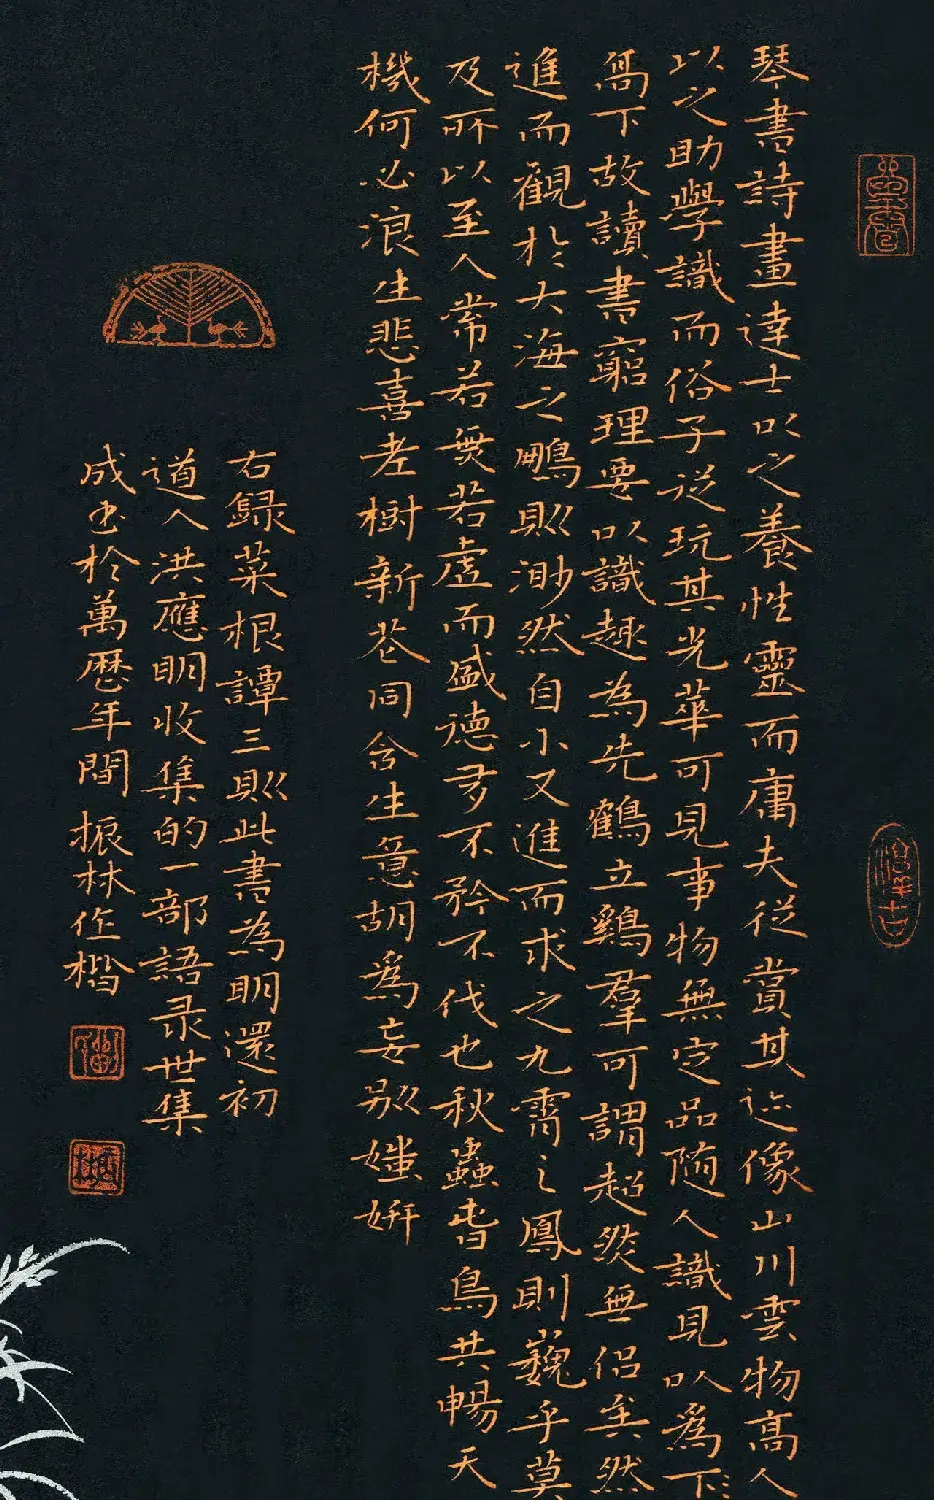 琴書詩畫達士以之養性靈而庸夫従賞其迹像山川雲物髙人
以之助學識而俗子従玩其光華可見事物無定品随人識見以為下
髙下故讀書窮理要以識趣為先鶴立鷄羣可謂超然無侣矣然
進而觀於大海之鵬則渺然自小又進而求之九霄之鳳則巍乎莫
及所以至人常若無若虚而盛徳多不矜不伐也秋蟲春鳥共暢天
機何必浪生悲喜老樹新花同含生意胡為妄别媸妍
右録菜根譚三則此書為明還初
道人洪應明收集的一部語录世集
成书於萬歷年間振林作楷